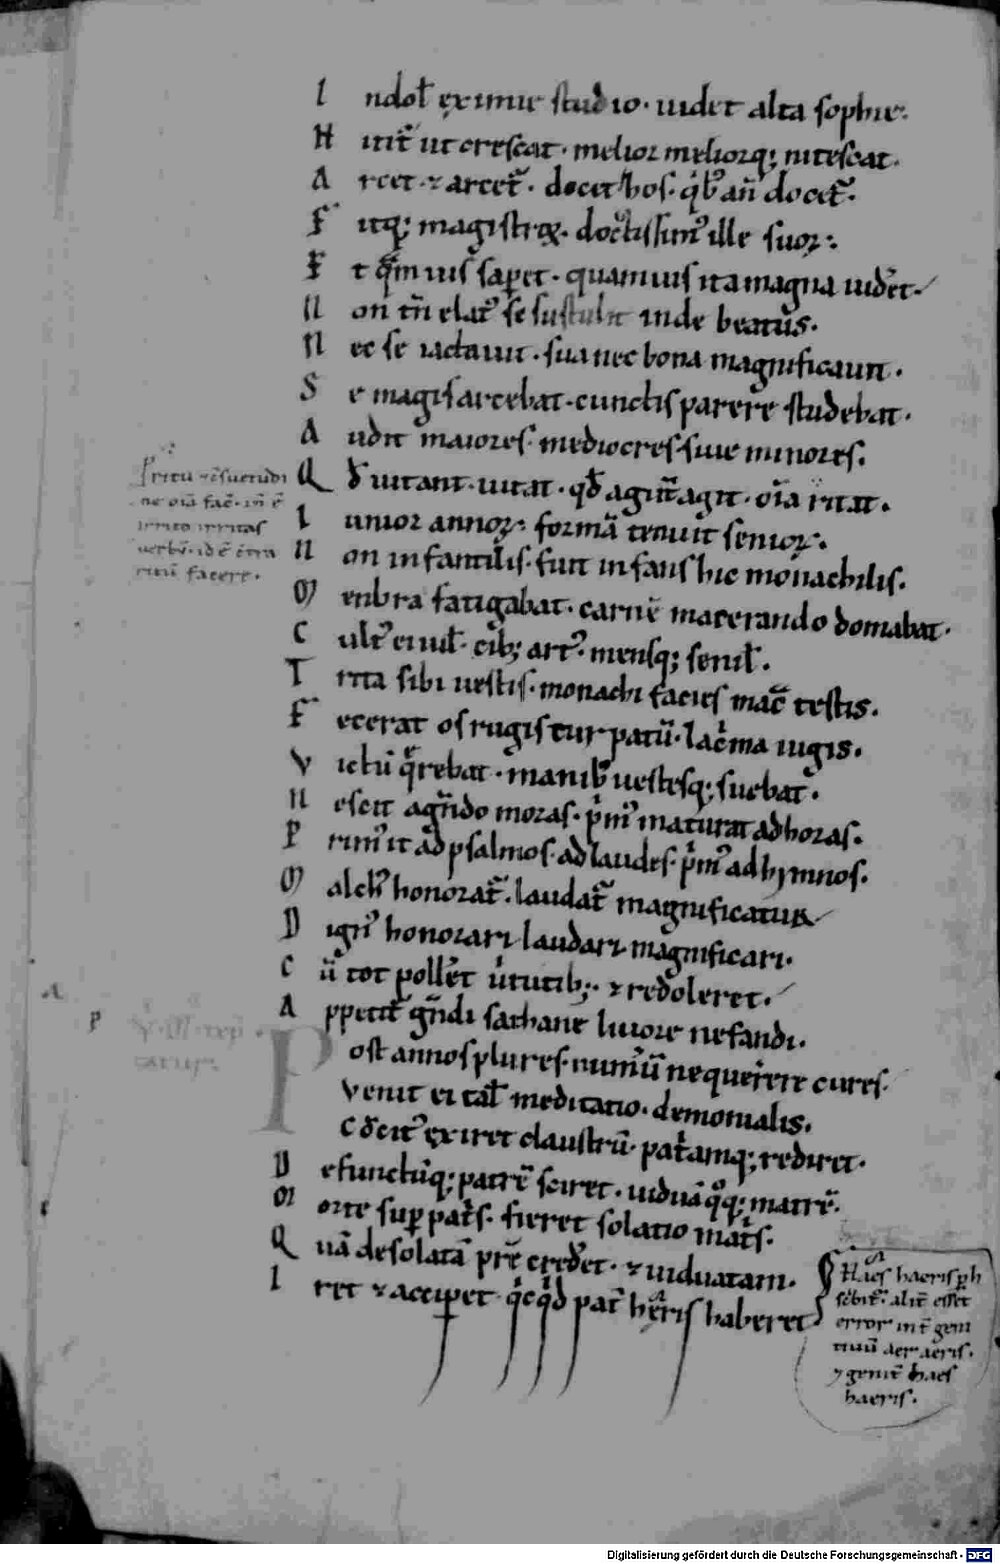 I ndol̄ ęximie studio· uidet alta sophie·
N itit᷑ ut crescat· melior meliorq; nitescat·
A rcet· ⁊ arcet᷑· docet hos· qⁱb; an̄ docet᷑·
F itq; magistroꝝ· doctissimꝰ ille suoꝝ·
E t quis sapet· quamuis ita magna uidet·
N on tn̄ elatꝰ se sustulit inde beatus·
N ec se iactauit· sua nec bona magnificauit·
S e magis arcebat· cunctis parere studebat·
A udit maiores· mediocres· siue minores·
Q d̄ uitant· uitat· qd̄ agunt agit· oīa ritat·
Ritu ⁊ c̄suetudi
ne oīa fac̄· in̄ ē
irrito irritas
uerbū· id ē c̄tra
ritū facere·
I unior annoꝝ· formā tenuit senioꝝ·
N on infantilis· fuit infans hic monachilis·
M enbra fatigabat· carnē macerando domabat·
C ultꝰ ei uil̄· cibꝰ artꝰ· mensq; senil̄·
T rita sibi uestis· monachi facies mac̄ testis·
F ecerat os rugis turpatū· lacⁱma iugis·
V ictū q̄rebat· manib; uestesq; suebat·
N escit agn̄do moras· pⁱmꝰ maturat ad horas·
P rimꝰ it ad psalmos· ad laudes· pⁱmꝰ ad hymnos·
M alchꝰ honorat᷑· laudat᷑ magnificatur
D ignꝰ honorari laudari magnificari·
C ū tot polleret uirtutib;· ⁊ redoleret·
A ppetit᷑ gn̄di sathane liuore nefandi·
P ost annos plures· numerū ne querere cures·
Venit ei tal̄ meditatio· demonialis·
C d̄citꝰ ęxiret claustrū· patⁱamq; rediret·
D efunctūq; patrē sciret· uiduā qoq; matrē·
M orte sup patⁱs· fieret solatio matⁱs·
Q uā desolatā p̄rē crederet· ⁊ uiduatam·
I ret ⁊ acciperet· qⁱcqⁱd pat̄ hęris haberet
Haes haeris ph
scⁱbit᷑· alit̄ esset
error int̄ geni
tiuū aer aeris·
⁊ genit̄ haes
haeris·